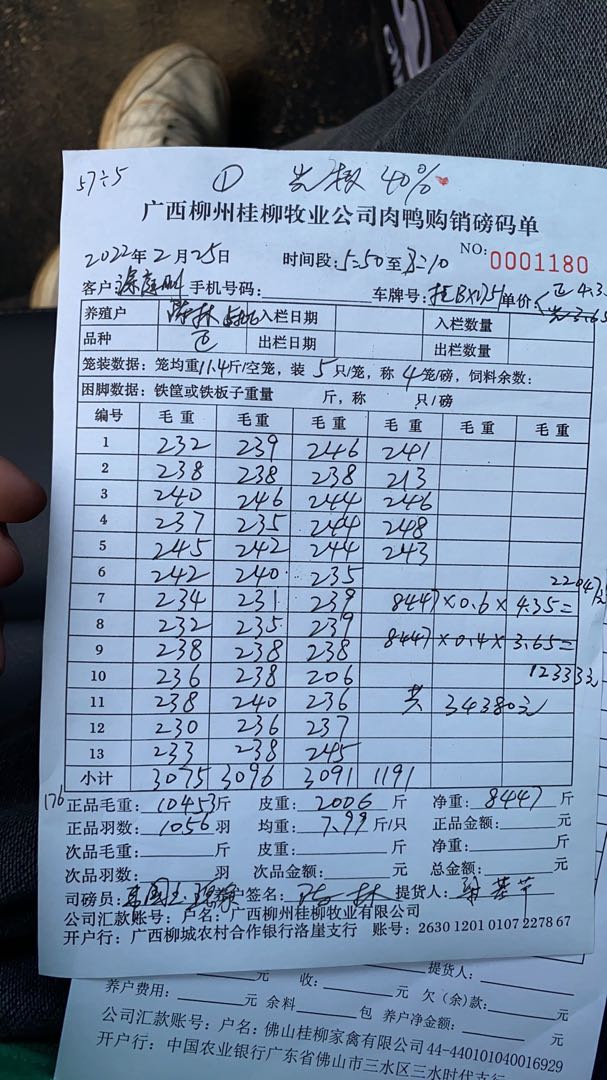 57÷5 ① 40%
广西柳州桂柳牧业公司肉鸭购销磅码单
NO: 0001180
2022年2月25日 时间段:5:50至3:10
客户 手机号码: 车牌号: 单价 4.35
3.65
养殖户 陈林 入栏日期 入栏数量
品种 出栏日期 出栏数量
笼装数据: 笼均重11.4斤/空笼, 装5只/笼, 称4笼/磅, 饲料余数:
困脚数据: 铁筐或铁板子重量 斤, 称 只/磅
编号 毛重 毛重 毛重 毛重 毛重 毛重
1 232 239 246 241
2 238 238 238 213
3 240 246 244 246
4 237 235 244 248
5 245 242 244 243
6 242 240 235 22047元
7 234 231 239 8447×0.6×4.35=
8 232 235 239
9 238 238 238 8447×0.4×3.65=
10 236 238 206 12333元
11 238 240 236 共 34380元
12 230 236 237
13 233 238 245
小计 3075 3096 3091 1191
176 正品毛重: 10453斤 皮重: 2006斤 净重: 8447斤
正品羽数: 1056羽 均重: 7.99斤/只 正品金额: 元
次品毛重: 斤 皮重: 斤 净重: 斤
次品羽数: 羽 次品金额: 元 总金额: 元
司磅员: 户签名: 陈林 提货人:
公司汇款账号: 户名: 广西柳州桂柳牧业有限公司
开户行: 广西柳城农村合作银行洛崖支行 账号: 2630 1201 0107 2278 67
元 提货人:
养户费用: 元 收: 元 欠(余)款: 元
公司汇款账号: 元 余料 包 养户净金额: 元
户名: 佛山桂柳家禽有限公司 44-440101040016929
开户行: 中国农业银行广东省佛山市三水区三水时代支行